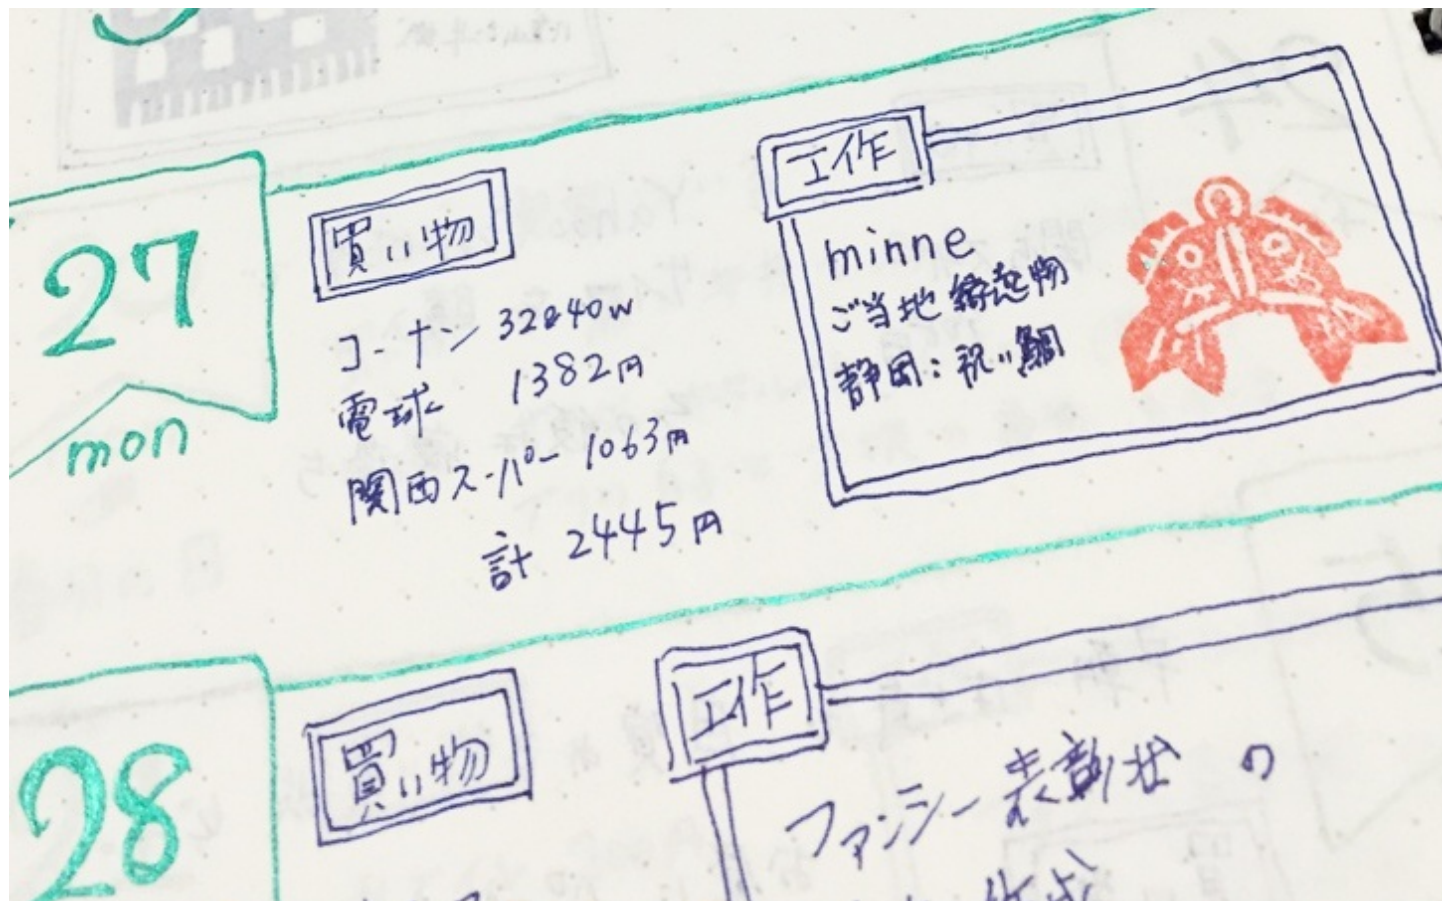 27
mon
買い物
コーナン 32&40w
電球 1382円
関西スーパー 1063円
計 2445円
工作
minne
ご当地 縁起物
静岡:祝い鯛
28
買い物
工作
ファンシー表彰状 の
作成